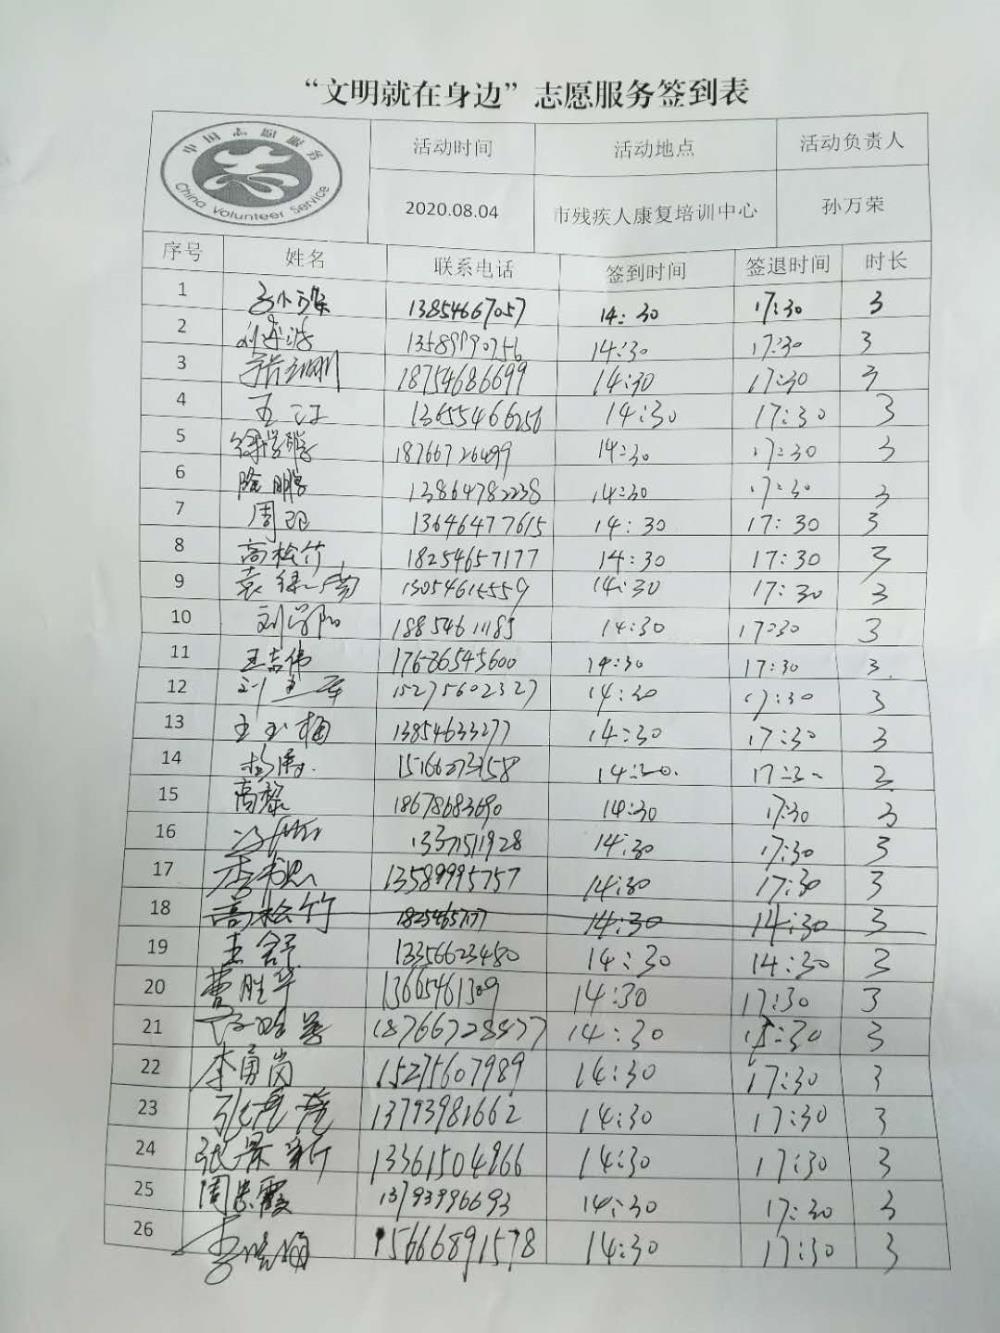 “文明就在身边”志愿服务签到表
中国志愿服务
China Volunteer Service
活动时间 活动地点 活动负责人
2020.08.04 市残疾人康复培训中心 孙万荣
序号 姓名 联系电话 签到时间 签退时间 时长
1 13854667057 14:30 17:30 3
2 14:30 17:30 3
3 18754686699 14:30 17:30 3
4 王江 13655466256 14:30 17:30 3
5 18766726499 14:30 17:30 3
6 隆鹏 13864782238 14:30 17:30 3
7 周 13646477615 14:30 17:30 3
8 高松竹 18254657177 14:30 17:30 3
9 14:30 17:30 3
10 14:30 17:30 3
11 王吉伟 17686545600 14:30 17:30 3
12 15275602327 14:30 17:30 3
13 王玉梅 13854633277 14:30 17:30 3
14 杨涛 15166273158 14:30 17:30 3
15 高黎 18678683690 14:30 17:30 3
16 13371511928 14:30 17:30 3
17 13589995757 14:30 17:30 3
18 高松竹 14:30 14:30 3
19 13356623480 14:30 14:30 3
20 曹胜华 14:30 17:30 3
21 18766728477 14:30 3
22 李勇岗 15275607989 14:30 17:30 3
23 13793981662 14:30 17:30 3
24 张景新 13361504966 14:30 17:30 3
25 周忠霞 13793996693 14:30 17:30 3
26 15666891578 14:30 17:30 3